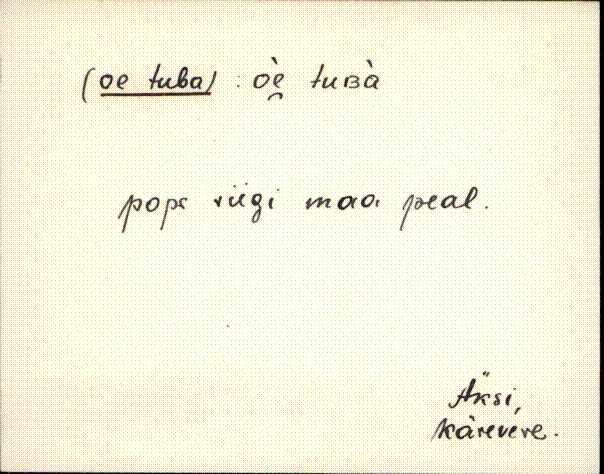 (oe tuba) : òè̯ tuʙà
pops riigi maa peal.
Äksi,
Kärevere.